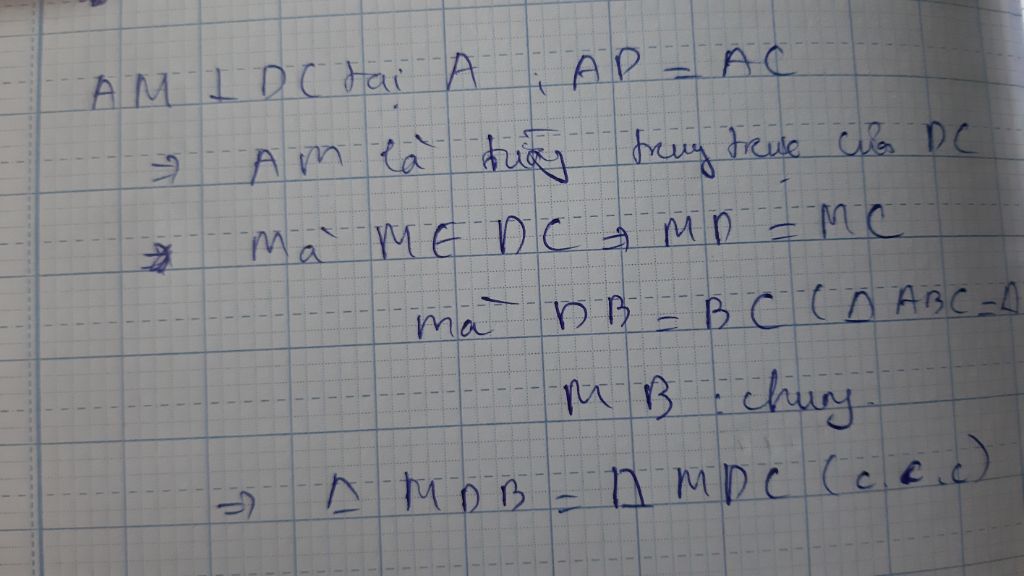 AM ⊥ DC tại A ; AD = AC
⇒ AM là đường trung trực của DC
⇒ Mà M ∈ DC ⇒ MD = MC
mà DB = BC (Δ ABC = Δ
MB : chung.
⇒ Δ MDB = Δ MDC (c.c.c)